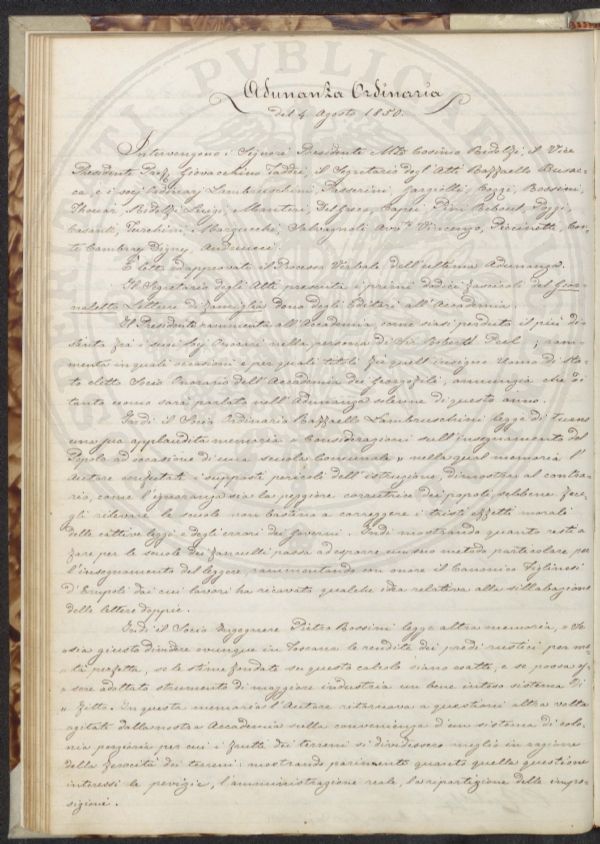 Adunanza Ordinaria
del 4 Agosto 1850.
Intervengono i Signori Presidente Mse Cosimo Ridolfi, il Vice
Presidente Prof. Giovacchino Taddei, il Segretario degl'Atti Raffaello Busac=
ca, e i socj Ordinarj Lambruschini, Passerini, Gargiolli, Rossini,
Thouar, Ridolfi Luigi, Manteri, Del Greco, Capei, Pini, Poggi,
Casanti, Turchini, Marzucchi, Salvagnoli Avvto Vincenzo, Con=
te Cambray Digny, Andreucci.
È letto ed approvato il Processo Verbale dell'ultima Adunanza.
Il Segretario degli Atti presenta i primi dodici fascicoli del Gior=
naletto Letture di famiglia, dono degli Editori all'Accademia.
Il Presidente rammenta all'Accademia, come siasi perduto il più di=
stinto fra i suoi Socj Onorarj nella persona di Sir Robertt Peel; ram=
menta in quali occasioni e per quali titoli fu quell'insigne Uomo di Sta=
to eletto Socio Onorario dell'Accademia dei Georgofili, annunzia che di
tanto uomo sarà parlato nell'Adunanza solenne di questo anno.
Indi il Socio Ordinario Raffaello Lambruschini legge di turno
una sua applaudita memoria « Considerazioni sull'insegnamento del
Popolo ad occasione di una scuola Comunale » nella qual memoria l'
Autore confutati i supposti pericoli dell'istruzione, dimostra al contra=
rio, come l'ignoranza sia la peggiore corruttrice dei popoli, sebbene fac=
gli rilevare le scuole non bastano a correggere i tristi effetti morali
delle cattive leggi e degli errori dei Governi. Indi mostrando quanto resti a
fare per le scuole dei fanciulli passa ad esporre un suo metodo particolare, per
l'insegnamento del leggere, rammentando con onore il Canonico Figlinesi
d'Empoli dai cui lavori ha ricavato qualche idea relativa alla sillabazione
delle lettere doppie.
Indi il Socio Ingegnere Pietro Rossini legge altra memoria, « Se
« sia giusto dividere ovunque in Toscana le rendite dei predi rustici per me=
« tà perfetta, se le stime fondate su questo calcolo siano esatte, e se possa es=
« sere adottato strumento di maggiore industria un bene inteso sistema di
« Fitto. In questa memoria l'Autore ritornava a questioni altra volta
agitati dalla nostra Accademia sulla convenienza d'un sistema di colo=
nia parziaria per cui i frutti dei terreni si dividessero meglio in ragione
della feracità dei terreni; mostrando parimente quanto quella questione
interessi le perizie, l'amministrazione reale, la ripartizione delle impo=
sizioni.